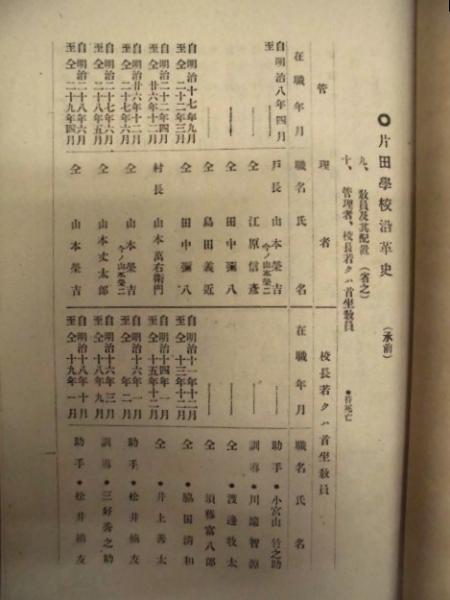 ●片田學校沿革史 (承前)
九、教員及其配置(省之)
十、管理者、校長若クハ首坐教員 ●符死亡
管理者
在職年月 職名 氏名
自明治八年四月
至
戸長 山本榮吉
今ノ山本榮二
仝 江原信彥
仝 田中彌八
仝 島田義近
自明治十七年九月
至仝二十二年三月
仝 田中彌八
自明治二十二年四月
至仝廿六年十二月
村長 山本萬右衞門
今ノ山本榮二
自明治廿六年十二月
至仝二十七年六月
仝 山本榮吉
自明治二十七年六月
至仝二十八年五月
仝 山本丈太郎
自明治二十八年六月
至仝二十九年四月
仝 山本榮吉
校長若クハ首坐教員
在職年月 職名 氏名
助手 ●小宮山 之助
訓導 ●川邊智源
仝 ●渡邊牧太
仝 須藤富八郎
自明治十一年十二月
至仝十三年十二月
仝 ●脇田清和
自明治十四年一月
至仝十五年十二月
仝 ●井上善太
自明治十六年一月
至仝年二月
助手 ●松井楠友
自明治十六年三月
至仝十八年九月
訓導 ●三好秀之助
自明治十八年十月
至仝十九年一月
助手 ●松井楠友